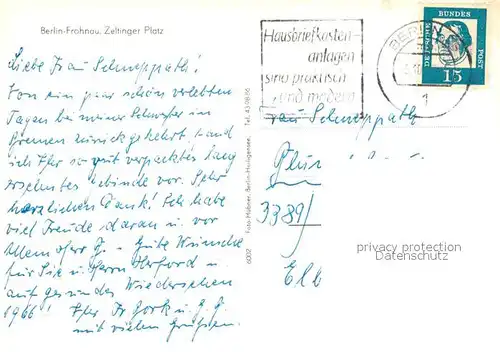 Berlin-Frohnau, Zeltinger Platz
Liebe Frau Schneppath!
Von ein paar schön verlebten
Tagen bei meiner Schwester in
Bremen zurückgekehrt, fand
ich Ihr so gut verpacktes lang
ersehntes vor. Sehr
herzlichen Dank! Ich habe
viel Freude daran u. vor
allem Gute Wünsche
für Sie u. Herrn u.
auf gesundes Wiedersehen
1966! Ihr
mit vielen Grüssen.
6002 Foto-Hübner, Berlin-Heiligensee, Tel. 43 98 86
Hausbriefkasten-
anlagen
sind praktisch
und modern
BERLIN
1
DEUTSCHE
BUNDES
POST
15
Frau Schneppath
3389/
Elb
privacy protection
Datenschutz